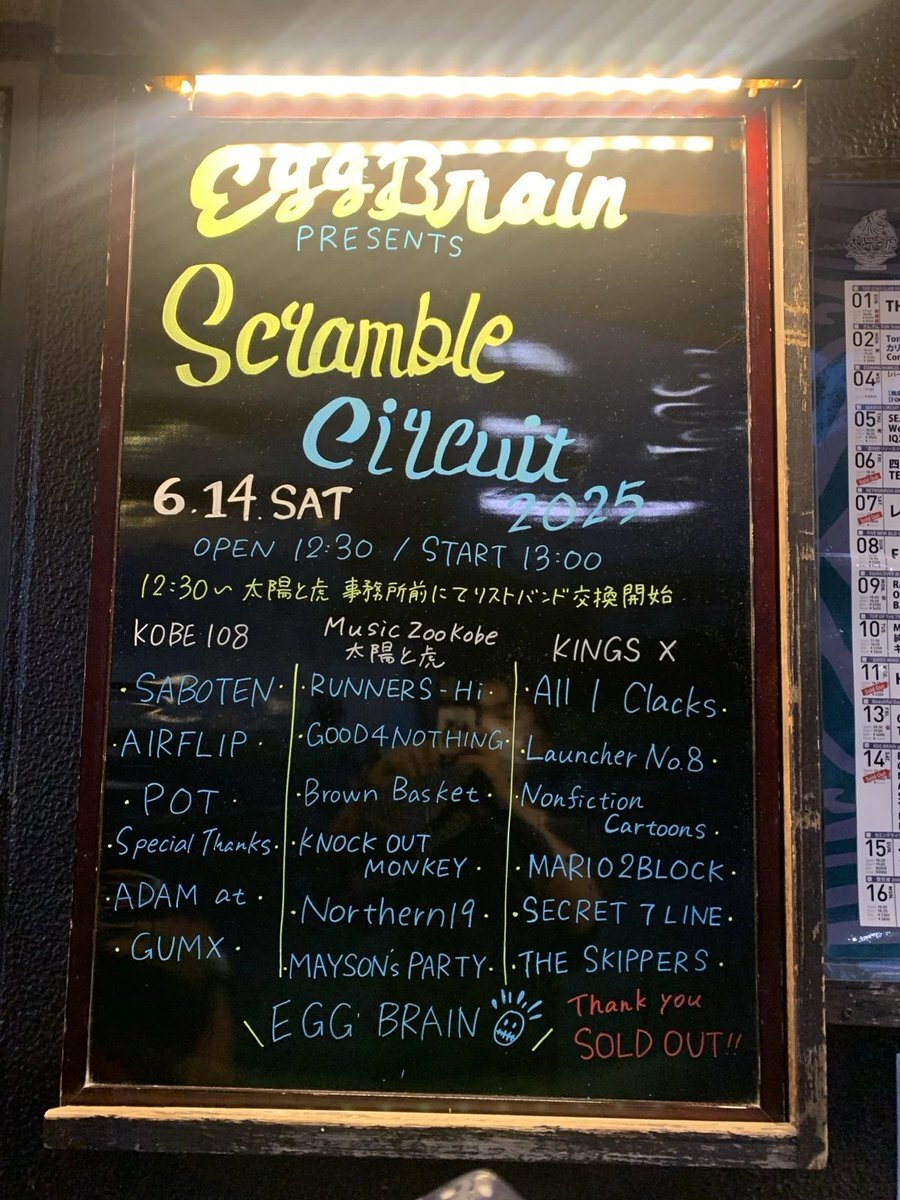 EggBrain
PRESENTS
Scramble
Circuit
2025
6.14.SAT
OPEN 12:30 / START 13:00
12:30〜 太陽と虎 事務所前にてリストバンド交換開始
KOBE 108
・SABOTEN・
・AIRFLIP・
・POT・
・Special Thanks・
・ADAM at・
・GUMX・
Music Zoo Kobe
太陽と虎
・RUNNERS-Hi・
・GOOD4NOTHING・
・Brown Basket・
・KNOCK OUT
MONKEY・
・Northern19・
・MAYSON's PARTY・
KINGS X
・All I Clacks・
・Launcher No.8・
・Nonfiction
Cartoons・
・MARIO2BLOCK・
・SECRET 7 LINE・
・THE SKIPPERS・
\EGG BRAIN/
Thank you
SOLD OUT!!
太陽と虎
01
TH
02
カリ
04
05
SEA
06
四
TE
Sold Out
07
レ
Sold Out
08
09
10
11
Sold Out
13
14
Sold Out
15
16